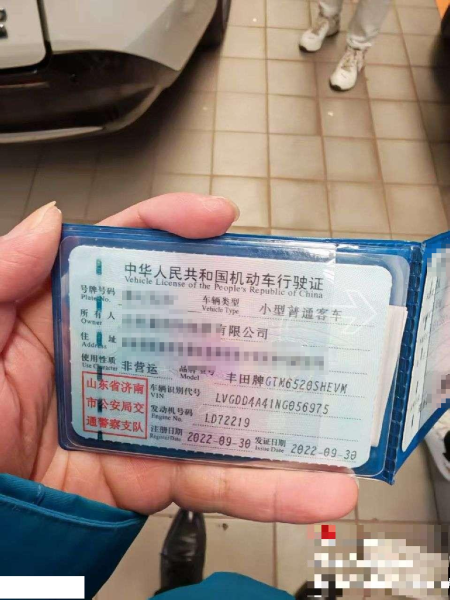 中华人民共和国机动车行驶证
Vehicle License of the People's Republic of China
号牌号码 Plate No. 车辆类型 Vehicle Type 小型普通客车
所有人 Owner 有限公司
住址 Address
使用性质 Use Character 非营运 品牌型号 Model 丰田牌GTM6520SHEVM
山东省济南市公安局交通警察支队
车辆识别代号 VIN LVGDD4A41NG056975
发动机号码 Engine No. LD72219
注册日期 Register Date 2022-09-30 发证日期 Issue Date 2022-09-30